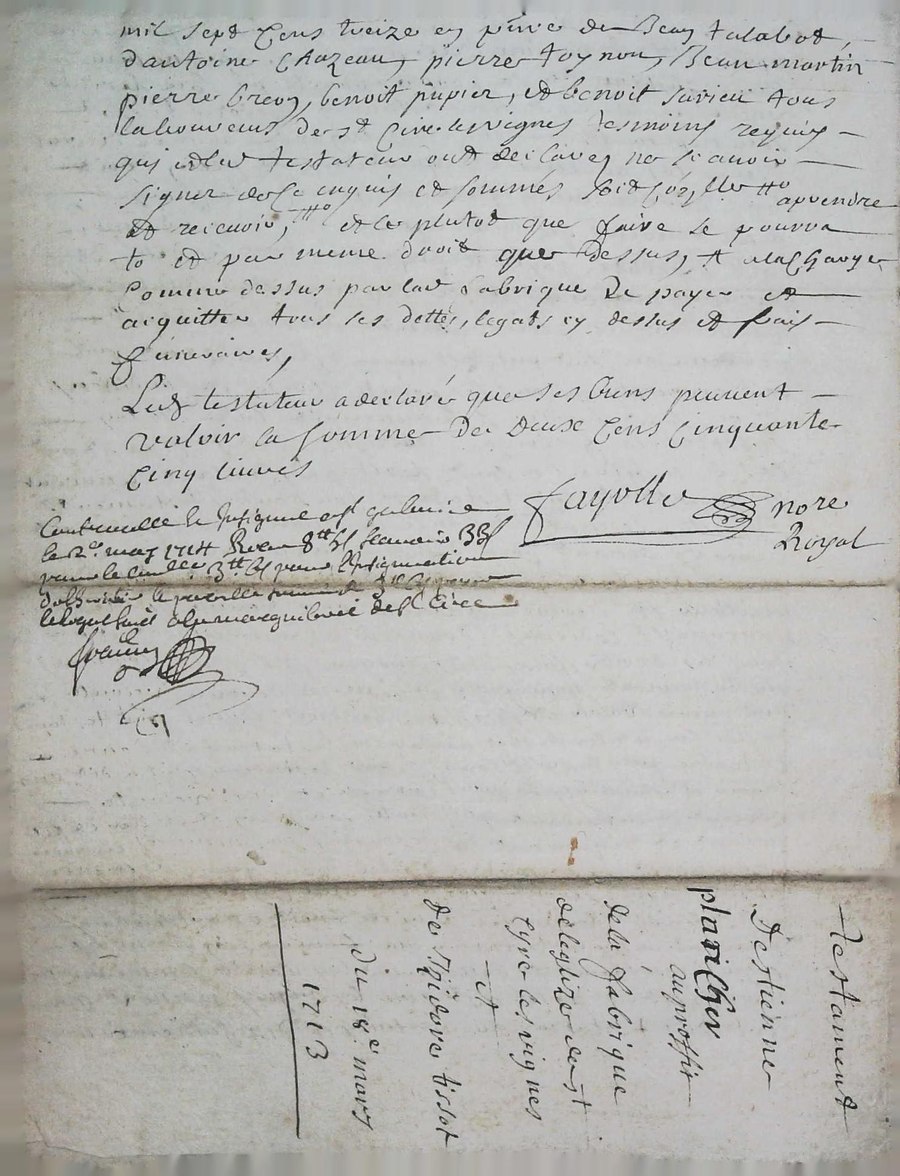 mil sept Cens treize en pnce de Jean talabot,
d'antoine Chazeau, pierre toynon, Jean martin
pierre breon, benoit pupier, et benoit surieu tous
laboureurs de st Cire les vignes tesmoins requis
qui et led testateur ont declarez ne scauoir
signer de Ce enquis et sommés
apprendre
et receuoir, et le plutot que faire se pourra
to et par meme droit que dessus, + a la Charge
Comme dessus par lad fabrique De payer et
acquitter tous ses dettes, legats cy dessus et frais
funeraires,
Led testateur a declaré que ses biens peuuent
valoir la somme De Deux Cens Cinquante
Cinq liures
fayolle nore
Royal
Controuellé et Insinué a st galmier
le 2e may 1714 Receu 8tt
3tt pour l'Insinuation
de st Cire
testament
Destienne
planCher
au proffit
de la fabrique
de leglize de st
Cyre les vignes
et
De Théodore tissot
du 18e mars
1713